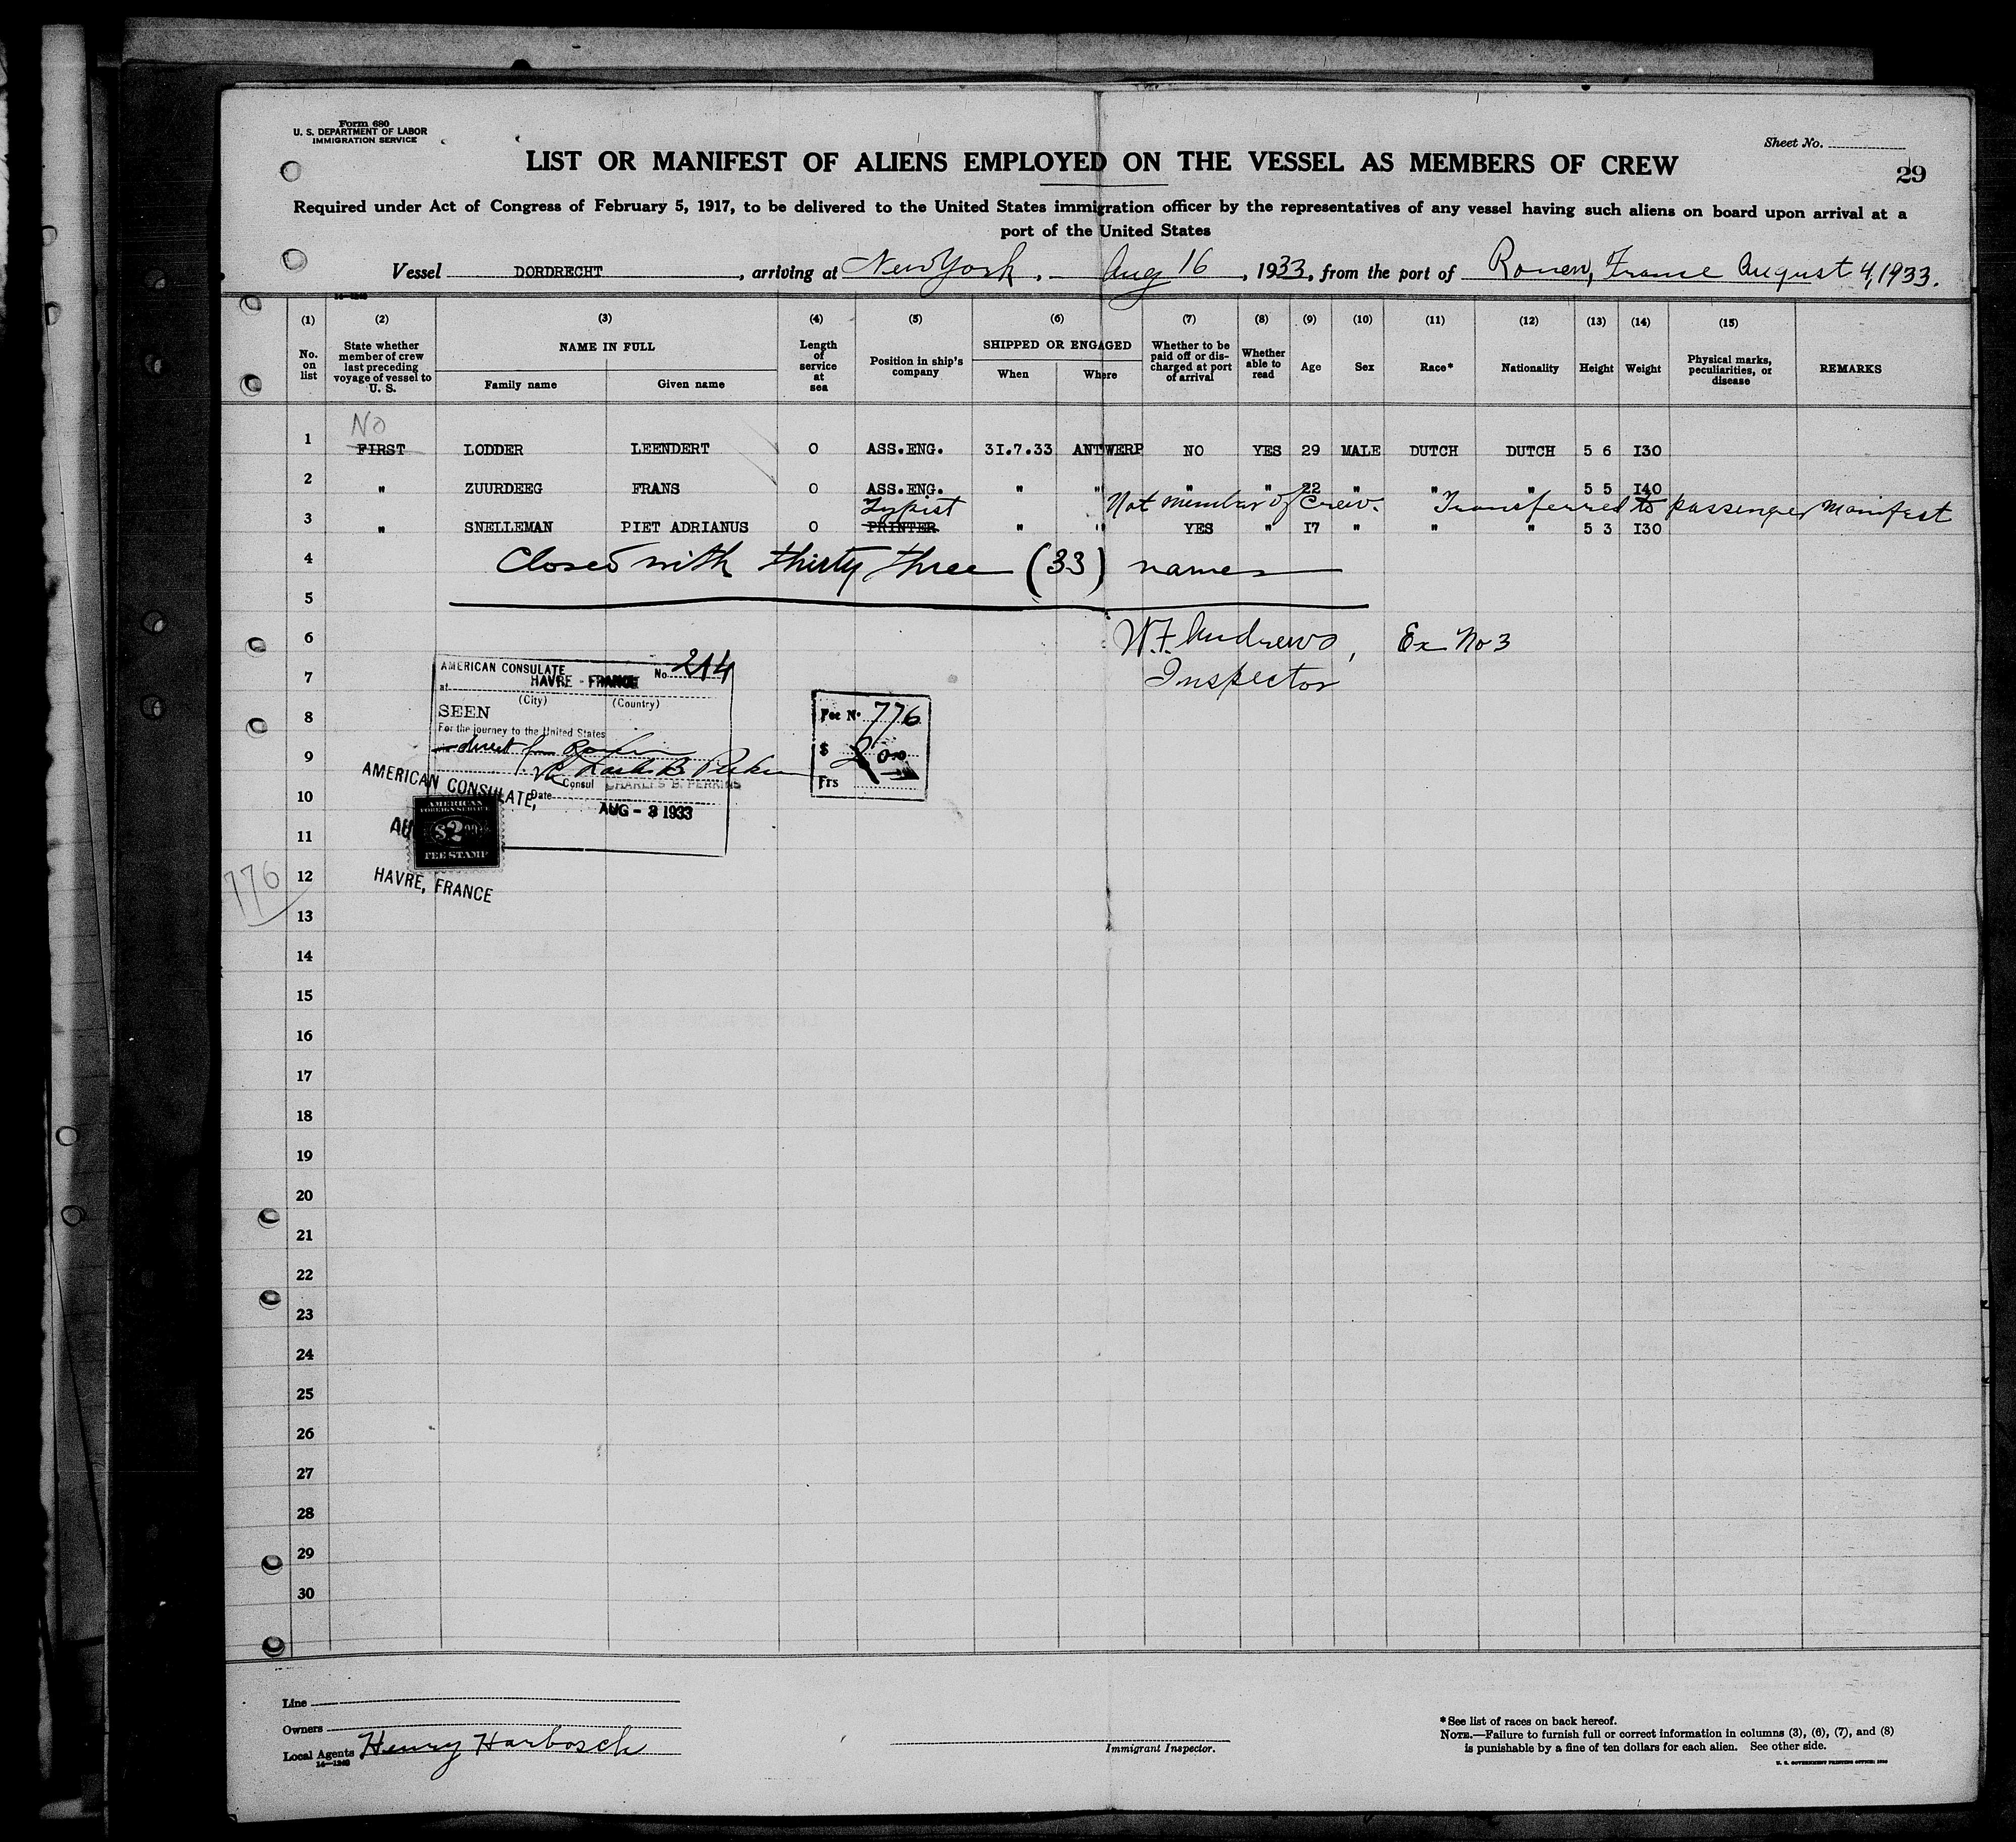 Form 680
U. S. DEPARTMENT OF LABOR
IMMIGRATION SERVICE
Sheet No.
LIST OR MANIFEST OF ALIENS EMPLOYED ON THE VESSEL AS MEMBERS OF CREW
29
Required under Act of Congress of February 5, 1917, to be delivered to the United States immigration officer by the representatives of any vessel having such aliens on board upon arrival at a
port of the United States
Vessel DORDRECHT, arriving at New York, Aug 16, 1933, from the port of Rouen, France August 4, 1933.
14—1240
(1) (2) (3) (4) (5) (6) (7) (8) (9) (10) (11) (12) (13) (14) (15)
No. on list
State whether member of crew last preceding voyage of vessel to U. S.
NAME IN FULL
Family name Given name
Length of service at sea
Position in ship's company
SHIPPED OR ENGAGED
When Where
Whether to be paid off or discharged at port of arrival
Whether able to read
Age
Sex
Race*
Nationality
Height
Weight
Physical marks, peculiarities, or disease
REMARKS
No
1 FIRST LODDER LEENDERT 0 ASS.ENG. 31.7.33 ANTWERP NO YES 29 MALE DUTCH DUTCH 5 6 130
2 " ZUURDEEG FRANS 0 ASS.ENG. " " " " 22 " " " 5 5 140
Typist Not member of Crew. Transferred to passenger manifest
3 " SNELLEMAN PIET ADRIANUS 0 PRINTER " " YES " 17 " " " 5 3 130
4 Closed with thirty three (33) names
5
6 W.F. Andrews, Ex No 3
7 Inspector
AMERICAN CONSULATE No. 214
at HAVRE - FRANCE
(City) (Country)
8
SEEN
For the journey to the United States
direct from Rouen
Consul CHARLES B. PERKINS
Date AUG - 3 1933
Fee No. 776
$ 2.00
Frs
9
AMERICAN CONSULATE,
10
AMERICAN
FOREIGN SERVICE
$2.00
FEE STAMP
11
HAVRE, FRANCE
776
12
13
14
15
16
17
18
19
20
21
22
23
24
25
26
27
28
29
30
Line
Owners
Local Agents Henry Harbosch
14—1240
Immigrant Inspector.
*See list of races on back hereof.
NOTE.—Failure to furnish full or correct information in columns (3), (6), (7), and (8)
is punishable by a fine of ten dollars for each alien. See other side.